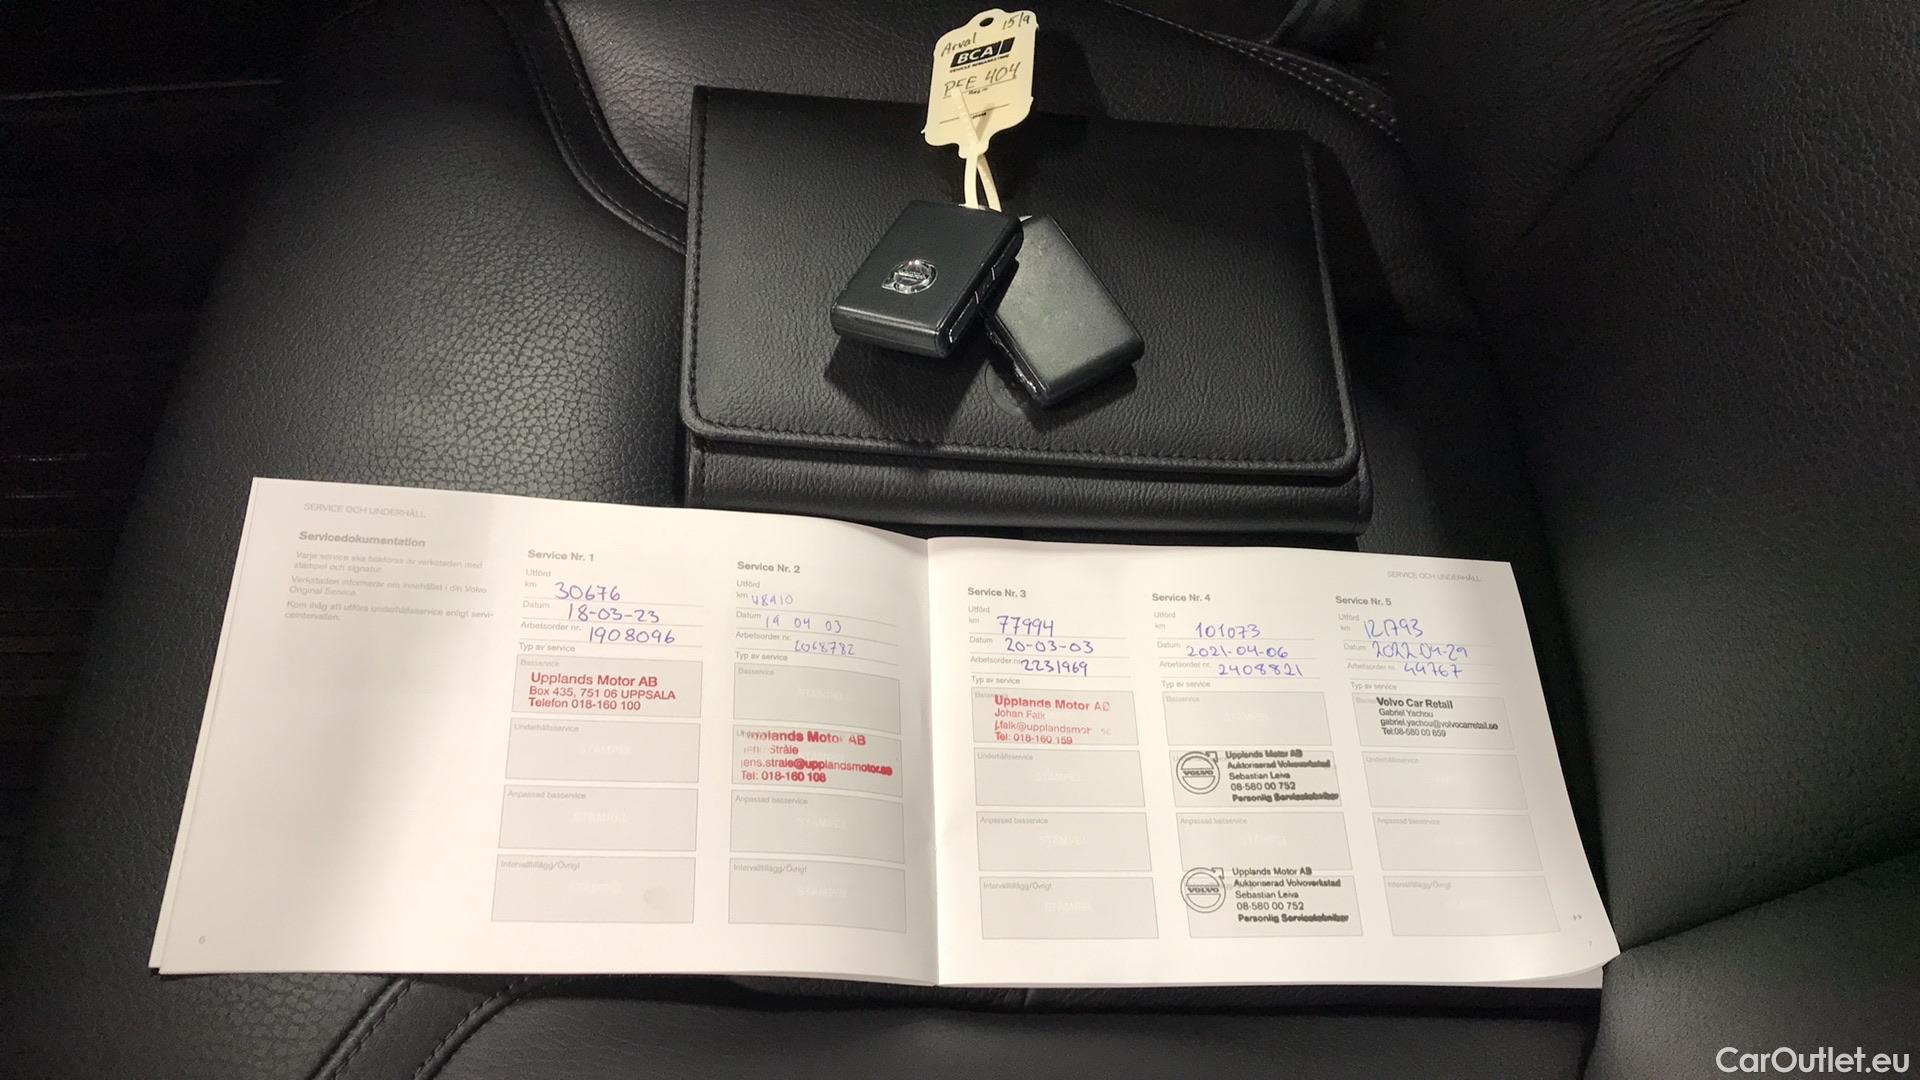 Arval 15/9
BCA
VEHICLE REMARKETING
PFE 404
Reg.nr
SERVICE OCH UNDERHÅLL
Servicedokumentation
Varje service ska bokföras av verkstaden med
stämpel och signatur.
Verkstaden informerar om innehållet i din Volvo
Original Service.
Kom ihåg att utföra underhållsservice enligt servi-
ceintervallen.
6
Service Nr. 1
Utförd
km 30676
Datum 18-03-23
Arbetsorder nr. 1908096
Typ av service
Basservice
Upplands Motor AB
Box 435, 751 06 UPPSALA
Telefon 018-160 100
Underhållsservice
STÄMPEL
Anpassad basservice
STÄMPEL
Intervalltillägg/Övrigt
STÄMPEL
Service Nr. 2
Utförd
km 48910
Datum 19 04 03
Arbetsorder nr. 2068782
Typ av service
Basservice
STÄMPEL
Upplands Motor AB
Jens Stråle
jens.strale@upplandsmotor.se
Tel: 018-160 108
Anpassad basservice
STÄMPEL
Intervalltillägg/Övrigt
STÄMPEL
SERVICE OCH UNDERHÅLL
Service Nr. 3
Utförd
km 77994
Datum 20-03-03
Arbetsorder nr. 2231969
Typ av service
Upplands Motor AB
Johan Falk
j.falk@upplandsmotor.se
Tel: 018-160 159
Underhållsservice
STÄMPEL
Anpassad basservice
STÄMPEL
Intervalltillägg/Övrigt
STÄMPEL
Service Nr. 4
Utförd
km 101073
Datum 2021-04-06
Arbetsorder nr. 2408821
Typ av service
Basservice
STÄMPEL
VOLVO
Upplands Motor AB
Auktoriserad Volvoverkstad
Sebastian Leiva
08-580 00 752
Personlig Servicetekniker
Anpassad basservice
STÄMPEL
VOLVO
Upplands Motor AB
Auktoriserad Volvoverkstad
Sebastian Leiva
08-580 00 752
Personlig Servicetekniker
Service Nr. 5
Utförd
km 121793
Datum 2022 04-29
Arbetsorder nr. 44767
Typ av service
Volvo Car Retail
Gabriel Yachou
gabriel.yachou@volvocarretail.se
Tel:08-580 00 659
Underhållsservice
STÄMPEL
Anpassad basservice
STÄMPEL
Intervalltillägg/Övrigt
STÄMPEL
7
CarOutlet.eu